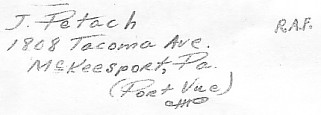 J. Petach
R.A.F.
1808 Tacoma Ave.
McKeesport, Pa.
(Port Vue)